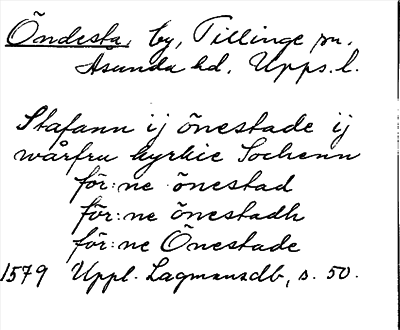 Öndesta, by, Tillinge sn.
Åsunda hd, Upps. l.
Stafann ij önestade ij
wårfru kyrkie Sochenn
för:ne önestad
för:ne önestadh
för:ne Önestade
1579 Uppl. Lagmansdb, s. 50.